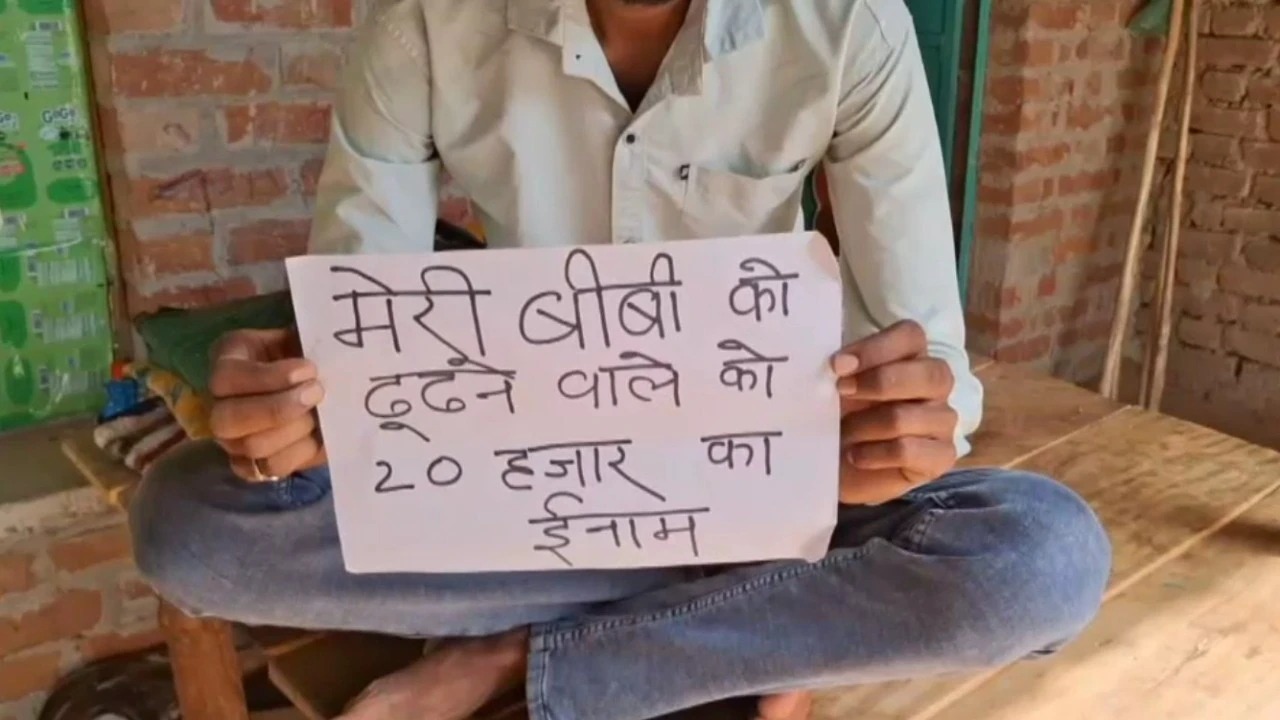 मेरी बीबी को
ढूढने वाले को
20 हजार का
ईनाम
GoGo